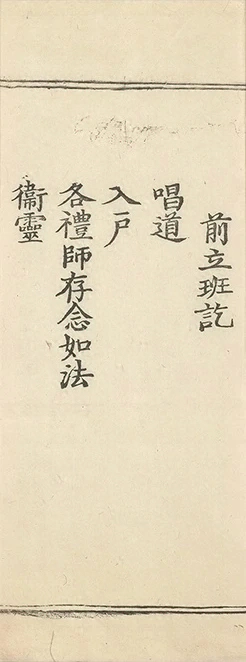 前立班訖
唱道
入戶
各禮師存念如法
衞靈